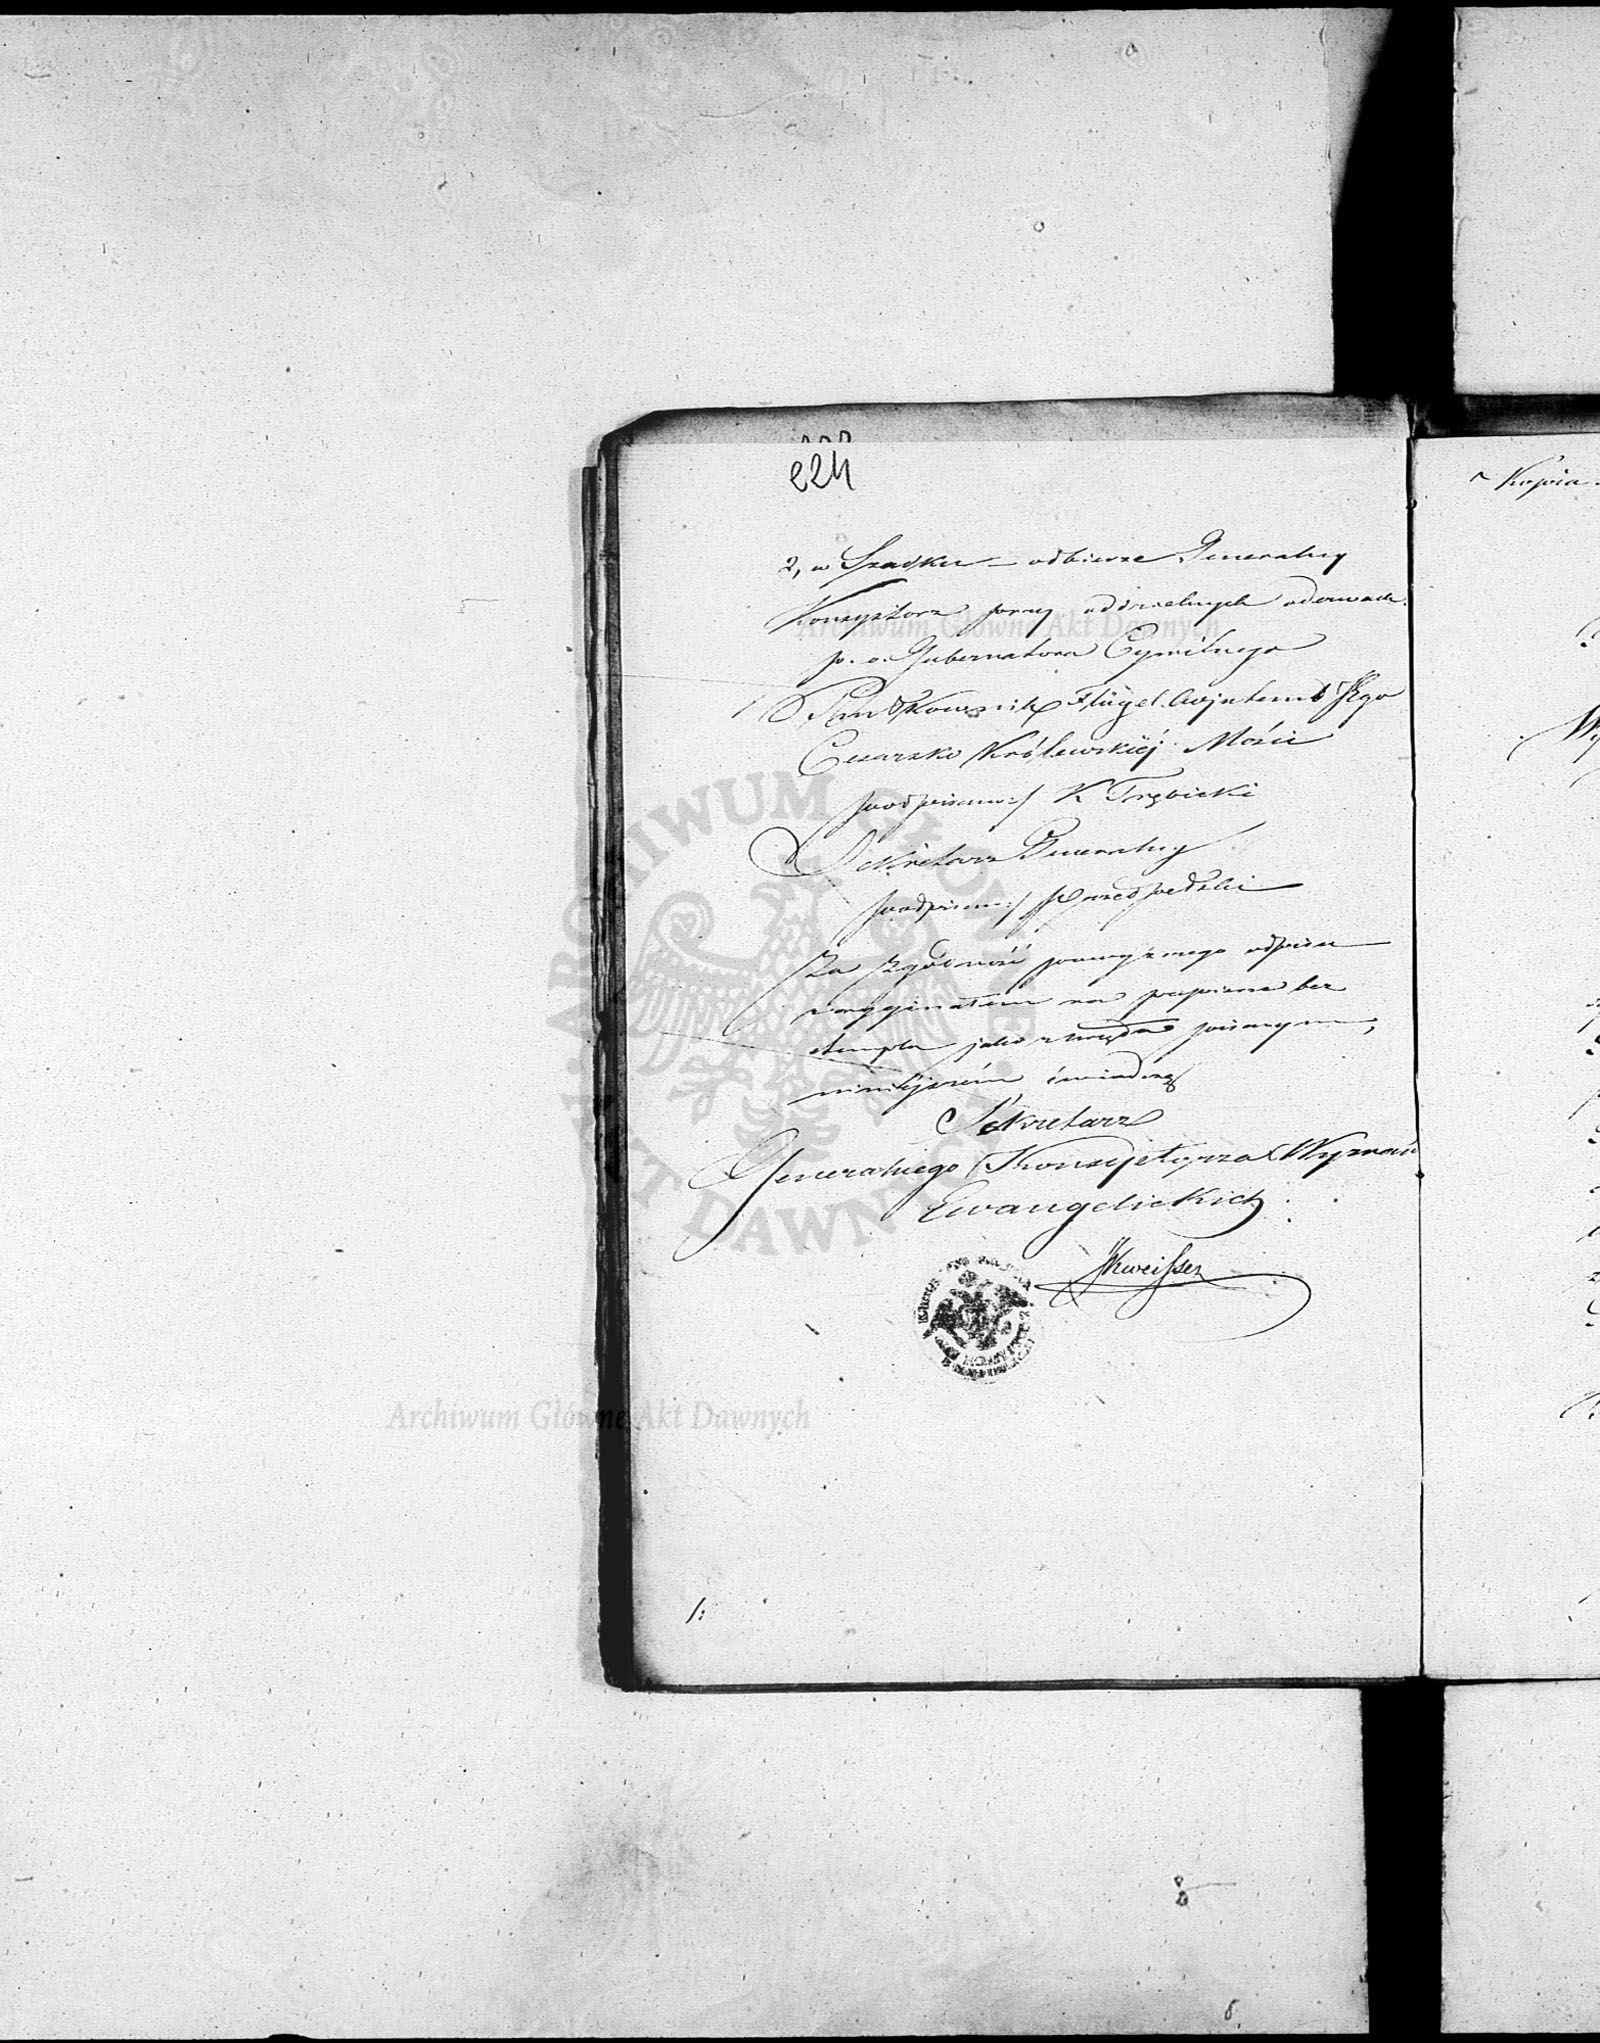 224
2, w Szadku – odbierze Generalny
Konsystorz przy oddzielnych odezwach.
p. o. Gubernatora Cywilnego
Pułkownik Flügel Adjutant Jego
Cesarsko Królewskiéj Mości
podpisano:/ K Trębicki
Sekretarz Generalny
podpisano:/ Przedpełski
Za zgodność powyższego odpisu
z oryginałem na papierze bez
stempla jako z urzędu pisanym,
niniejszém świadczę
Sekretarz
Generalnego Konsystorza Wyznań
Ewangelickich
1:
Kopia.
Archiwum Główne Akt Dawnych
ARCHIWUM GŁÓWNE AKT DAWNYCH
Archiwum Główne Akt Dawnych